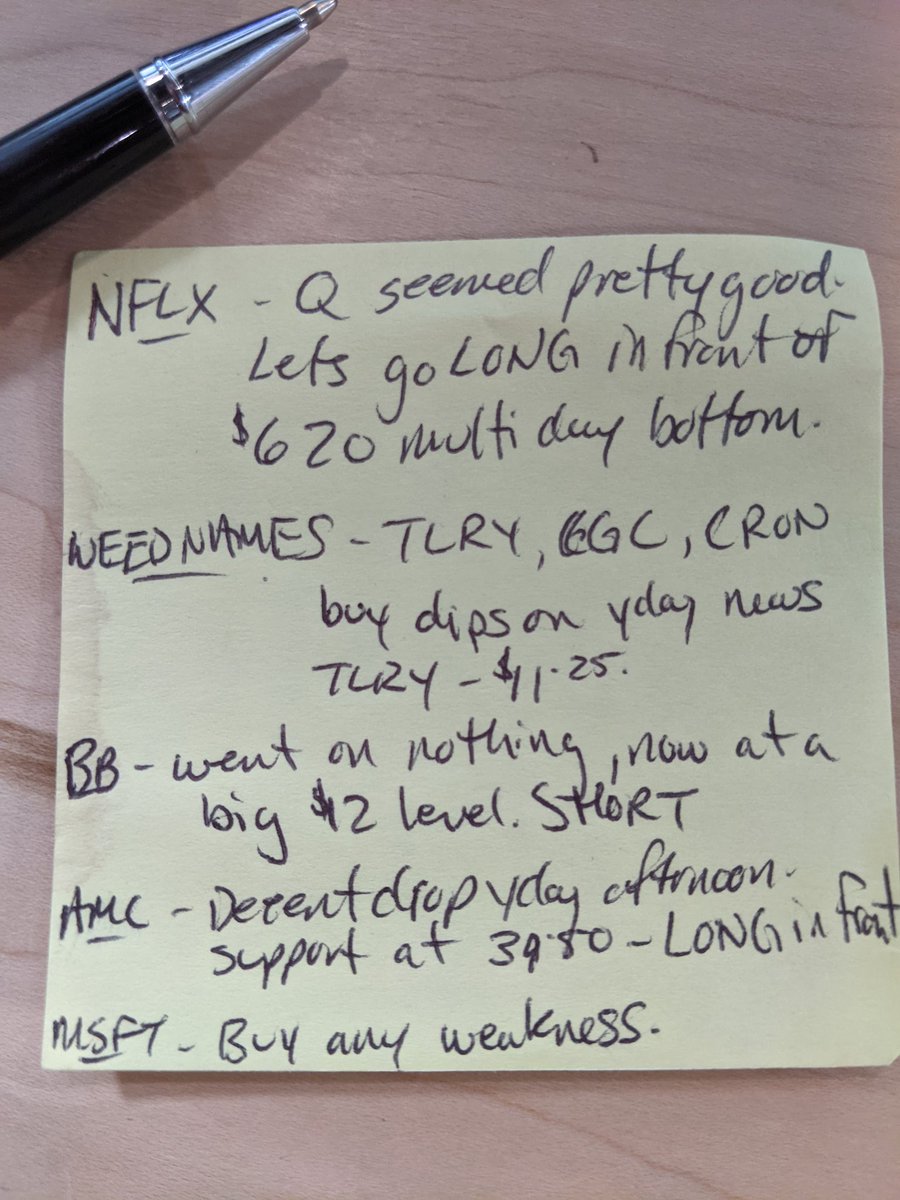 NFLX - Q seemed pretty good.
Lets go LONG in front of
$620 multi day bottom.
WEED NAMES - TLRY, CGC, CRON
buy dips on yday news
TLRY - $11.25.
BB - went on nothing, now at a
big $12 level. SHORT
AMC - Decent drop yday afternoon.
support at 39.80 - LONG in front
MSFT - Buy any weakness.